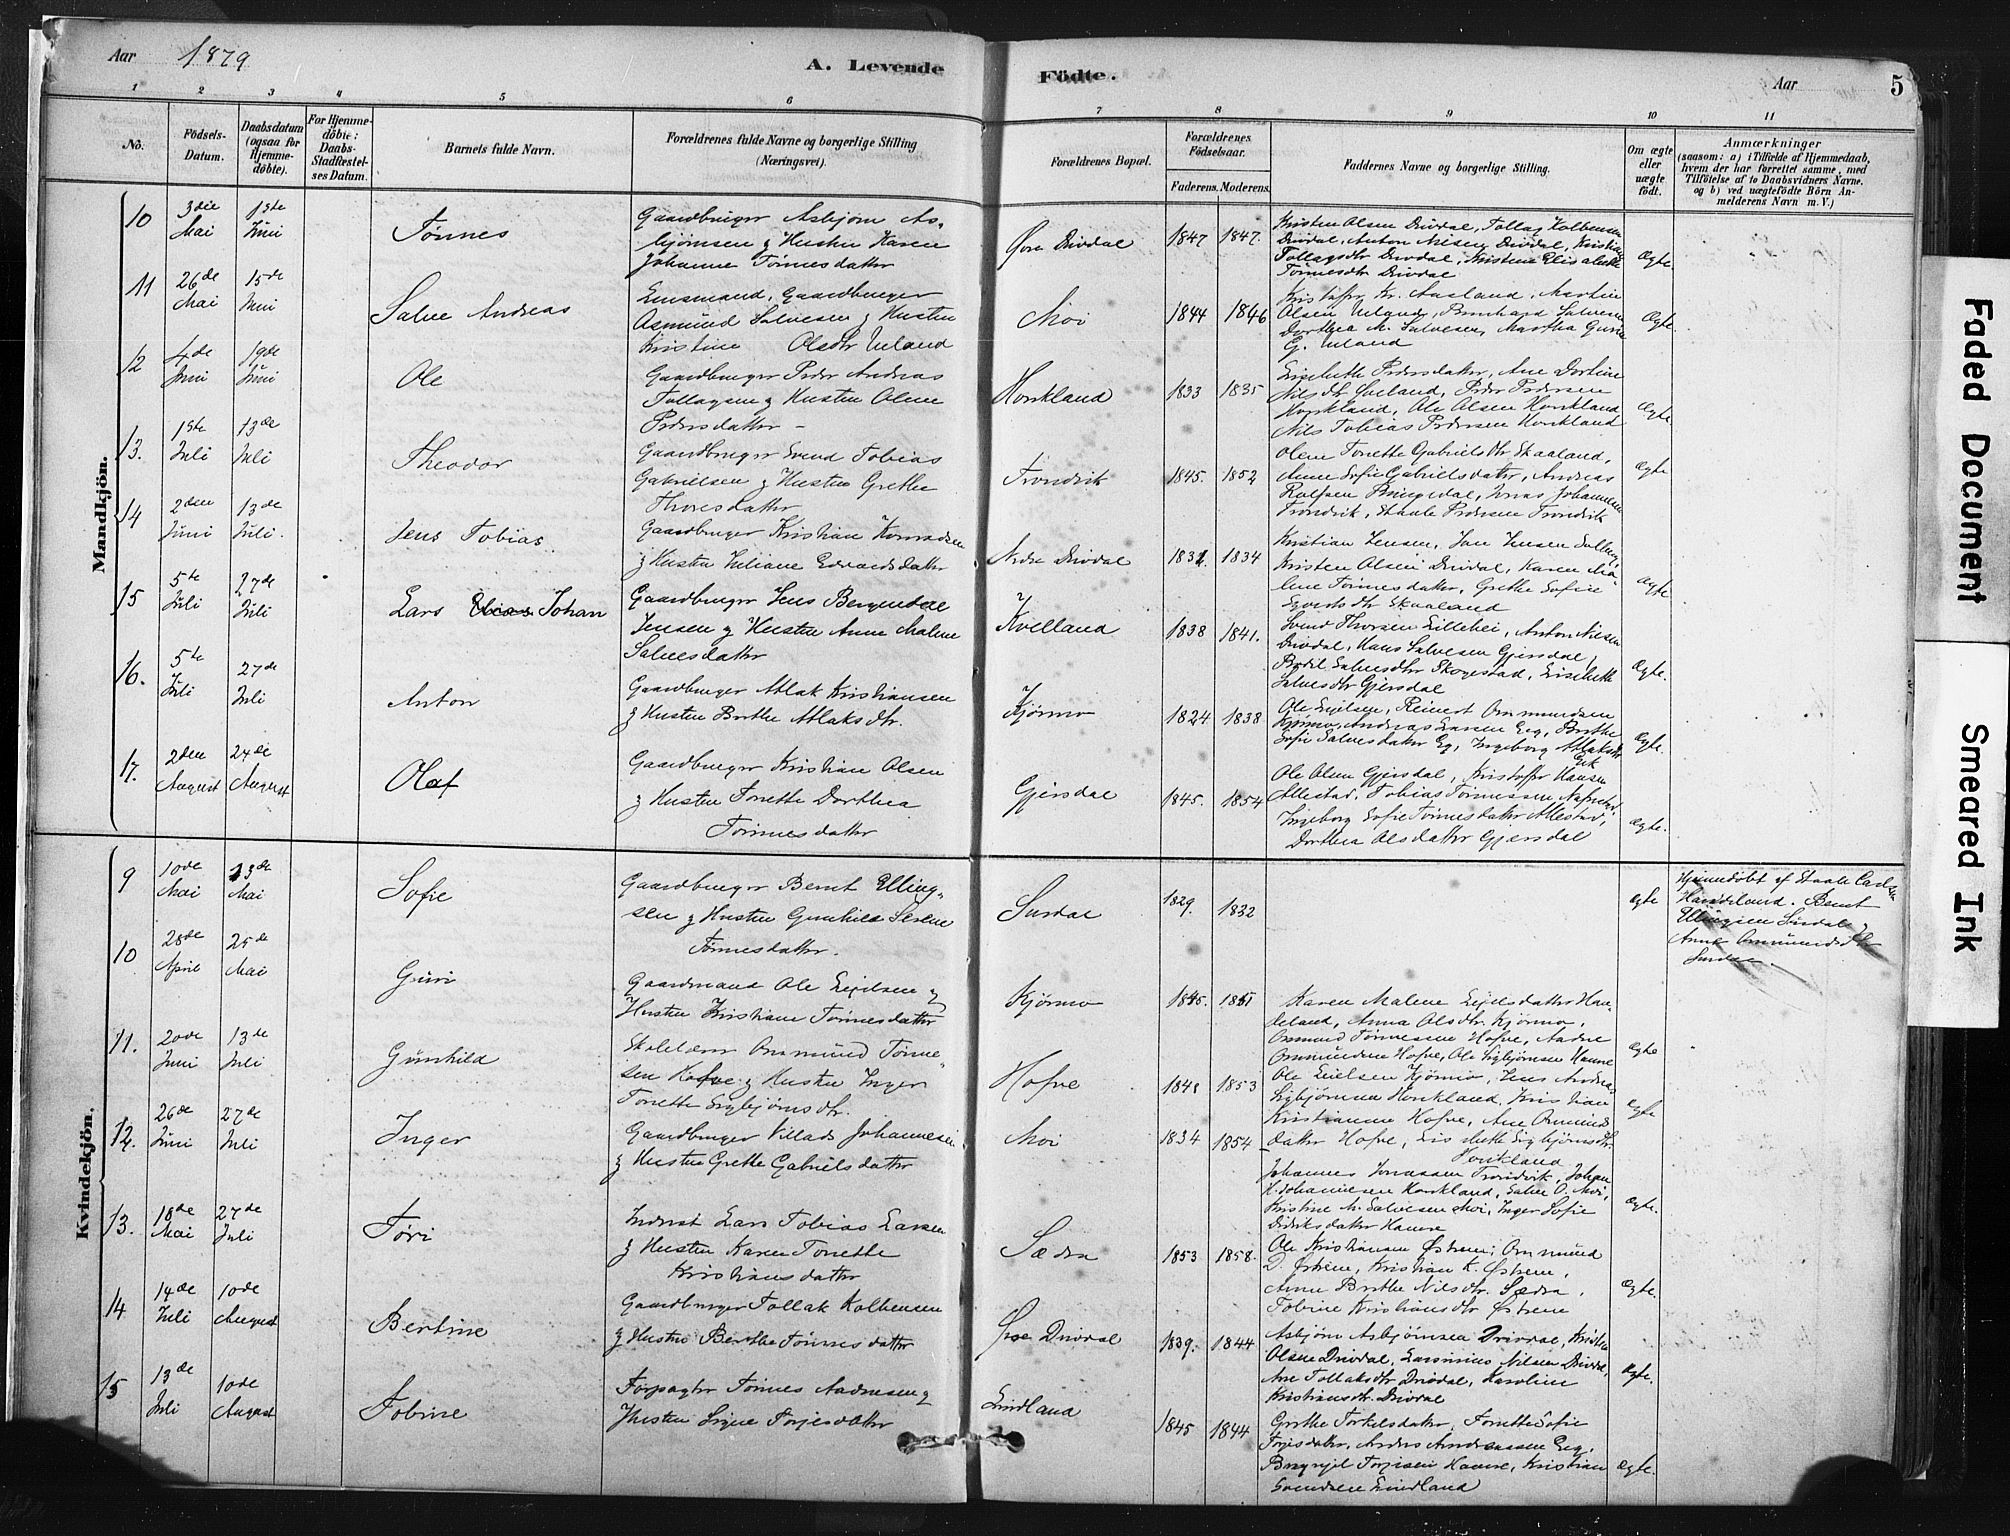 Aar 1879 A. Levende Födte. Aar 5
1 2 3 4 5 6 7 8 9 10 11
No.
Födsels-
Datum.
Daabsdatum
(ogsaa for
Hjemme-
döbte).
For Hjemme-
döbte:
Daabs-
Stadfæstel-
ses Datum.
Barnets fulde Navn.
Forældrenes fulde Navne og borgerlige Stilling
(Næringsvei).
Forældrenes Bopæl.
Forældrenes
Födselsaar.
Faderens. Moderens.
Faddernes Navne og borgerlige Stilling.
Om ægte
eller
uægte
födt.
Anmærkninger
(saasom: a) i Tilfælde af Hjemmedaab,
hvem der har forrettet samme, med
Tilföielse af to Daabsvidners Navne,
og b) ved uægtefödte Börn An-
melderens Navn m. V.)
Mandkjön.
10
3die
Mai
1ste
Juni
Tönnes
Gaardbruger Asbjørn As-
bjørnsen & Hustru Karen
Johanne Tönnesdatter
Øvre Drivdal
1847 1847.
Kristen Olsen Drivdal, Tollag Kolbensen
Drivdal, Anton Nilsen Drivdal, Kristiane
Tollagsdtr Drivdal,
Tönnesdtr Drivdal
Ægte.
11
26de
Mai
15de
Juni
Salve Andreas
Gaardbruger
Asmund Salvesen & Hustru
Kristine Olsdtr Ueland
Moi
1844 1846
Kr. Aasland, Martin
Olsen Ueland, Bernhard Salvesen
Dorthea M. Salvesen, Martha
G. Ueland
Ægte
12
4de
Juni
19de
Juni
Ole
Gaardbruger Peder Andreas
Tollagsen & Hustru Olene
Pedersdatter -
Honkland
1833 1835
Elisabeth Pedersdatter, Ane Dortine
Nilsdtr Peder Pedersen
Honkland, Ole Olsen Honkland
Nils Tobias Pedersen Honkland
Ægte
13.
1ste
Juli
13de
Juli
Theodor
Gaardbruger Svend Tobias
Gabrielsen & Hustru Grethe
Thoresdatter
Trondvik
1845. 1852
Olene Tonette Gabrielsdtr Skaaland,
Anne Sofie Gabrielsdatter, Andreas
Rolfsen Bringedal, Jonas Johannesen
Trondvik, Staale Pedersen Trondvik
Ægte
14
2den
Juni
13de
Juli.
Jens Tobias
Gaardbruger Kristian Konradsen
& Hustru Juliane Edvardsdatter
Nedre Drivdal
1834
Kristian Jensen, Jan Jensen
Kristen Olsen Drivdal, Karen Ma-
lene Tönnesdatter, Grethe Sofie
Skaaland
Ægte
15
5te
Juli
27de
Juli
Lars Johan
Gaardbruger Jens Bergendal
Jensen & Hustru Anne Malene
Salvesdatter
Kvelland
1838 1841.
Svend Thorsen Lillehei, Anton Nilsen
Drivdal, Hans Salvesen Gjersdal,
Bodil Salvesdtr Skogestad, Elisabeth
Salvesdtr Gjersdal
Ægte.
16.
5te
Juli
27de
Juli
Anton
Gaardbruger Atlak Kristiansen
& Hustru Berthe Atlaksdtr.
Kjørmo
1824 1838
Ole Eigilsen, Reinert Ommundsen
Kjørmo, Andreas Larsen Eeg, Berthe
Sofie Salvesdatter Eg, Ingeborg Atlaksdtr
Ægte.
17.
2den
August
24de
August
Olaf
Gaardbruger Kristian Olsen
& Hustru Tonette Dorthea
Tönnesdatter
Gjersdal
1845. 1854
Ole Olsen Gjersdal, Kristoffer Hansen
Allestad, Tobias Tönnessen
Ingeborg Sofie Tönnesdatter Allestad,
Dorthea Olsdatter Gjersdal
Ægte.
Kvindekjön.
9
10de
Mai
13de
Mai
Sofie
Gaardbruger Bernt Elling-
sen & Hustru Gunhild Serene
Tønnesdatter.
Surdal
1829. 1832
Ægte
Hjemmedøbt af Staale Carlsen
Haudeland. Bernt
Ellingsen Surdal &
Anne Ommundsdtr
Surdal.
10
28de
April
25de
Mai
Guri
Gaardmand Ole Eigilsen &
Hustru Kristiane Tönnesdatter
Kjørmo
1845. 1851
Karen Malene Eigelsdatter Hau-
deland, Anna Olsdtr Kjørmo,
Ommund Tønnesen Hofve, Andre
Ommundsen Hofve, Ole Sigbjørnsen Hamre
Ægte
11.
20de
Juni
13de
Juli
Gunhild
Skolelærer Ommund Tønne-
sen Hofve & Hustru Inger
Tonette Sigbjørnsdtr.
Hofve
1848 1853
Ole Eielsen Kjørmo, Jens Andreas
Sigbjørnsen Honkland, Kristian
Kristiansen Hofve, Ane Ommunds-
datter Hofve, Elisabeth Sigbjørnsdtr.
Honkland
Ægte
12.
26de
Juni
27de
Juli
Inger
Gaardbruger Villads Johannesen
& Hustru Grethe Gabrielsdatter
Moi
1834 1854
Johannes Jonassen Trondvik, Johan
H. Johannesen Honkland, Salve O. Moi,
Kristine M. Salvesen Moi, Inger Sofie
Didriksdatter Hamre
Ægte.
13.
18de
Mai
27de
Juli
Töri
Inderst Lars Tobias Larsen
& Hustru Karen Tonette
Kristiansdatter
Sædra
1853 1858.
Ole Kristiansen Østrem, Ommund
D. Østrem, Kristian K. Østrem,
Anne Berthe Nilsdtr. Sædra,
Tobine Kristiansdtr Østrem
Ægte.
14
14de
Juli
10de
August
Bertine
Gaardbruger Tollak Kolbensen
& Hustru Berthe Tönnesdatter
Øvre Drivdal
1839. 1844
Asbjørn Asbjørnsen Drivdal, Kristen
Olsen Drivdal, Rasmus Nilsen Drivdal,
Ane Tollaksdtr Drivdal, Karoline
Kristiansdtr Drivdal
Ægte.
15
13de
Juli
10de
August
Tobine
Forpagter Tönnes Aadnesen &
Hustru Signe Torjesdatter
Lindland
1845 1844
Grethe Torkelsdatter, Tonette Sofie
Torjesdatter, Anders Andreassen Eeg,
Bergnjel Torjesen Hamre, Kristian
Svendsen Lindland
Ægte.
Faded Document
Smeared Ink